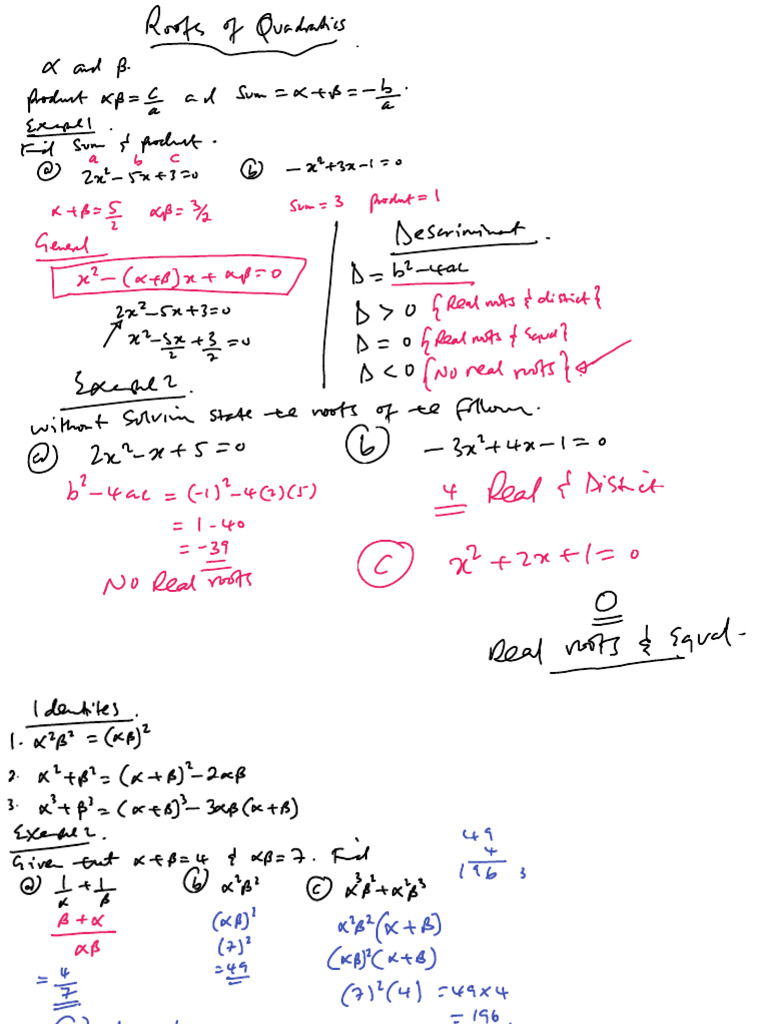 Roots of Quadratics
α and β.
product αβ = c/a and Sum = α + β = -b/a.
Example 1
Find Sum & product.
a b c
(a) 2x² - 5x + 3 = 0 (b) - x² + 3x - 1 = 0
α + β = 5/2 αβ = 3/2 Sum = 3 product = 1
General
x² - (α+β)x + αβ = 0
2x² - 5x + 3 = 0
x² - 5x/2 + 3/2 = 0
Descriminant.
Δ = b² - 4ac
Δ > 0 {Real roots & distinct}
Δ = 0 {Real roots & Equal}
Δ < 0 {No real roots}
Example 2.
Without Solving state the roots of the follown.
(a) 2x² - x + 5 = 0 (b) - 3x² + 4x - 1 = 0
b² - 4ac = (-1)² - 4(2)(5)
= 1 - 40
= -39
No Real roots
4 Real & Distinct
(C) x² + 2x + 1 = 0
0
Real roots & Equal.
Identites.
1. α²β² = (αβ)²
2. α² + β² = (α + β)² - 2αβ
3. α³ + β³ = (α + β)³ - 3αβ(α + β)
Example 2.
Given that α + β = 4 & αβ = 7. Find
(a) 1/α + 1/β (b) α²β² (c) α³β² + α²β³
β + α / αβ
= 4/7
(αβ)²
(7)²
= 49
α²β²(α + β)
(αβ)²(α + β)
(7)²(4) = 49 x 4
= 196.
49
4
196 3